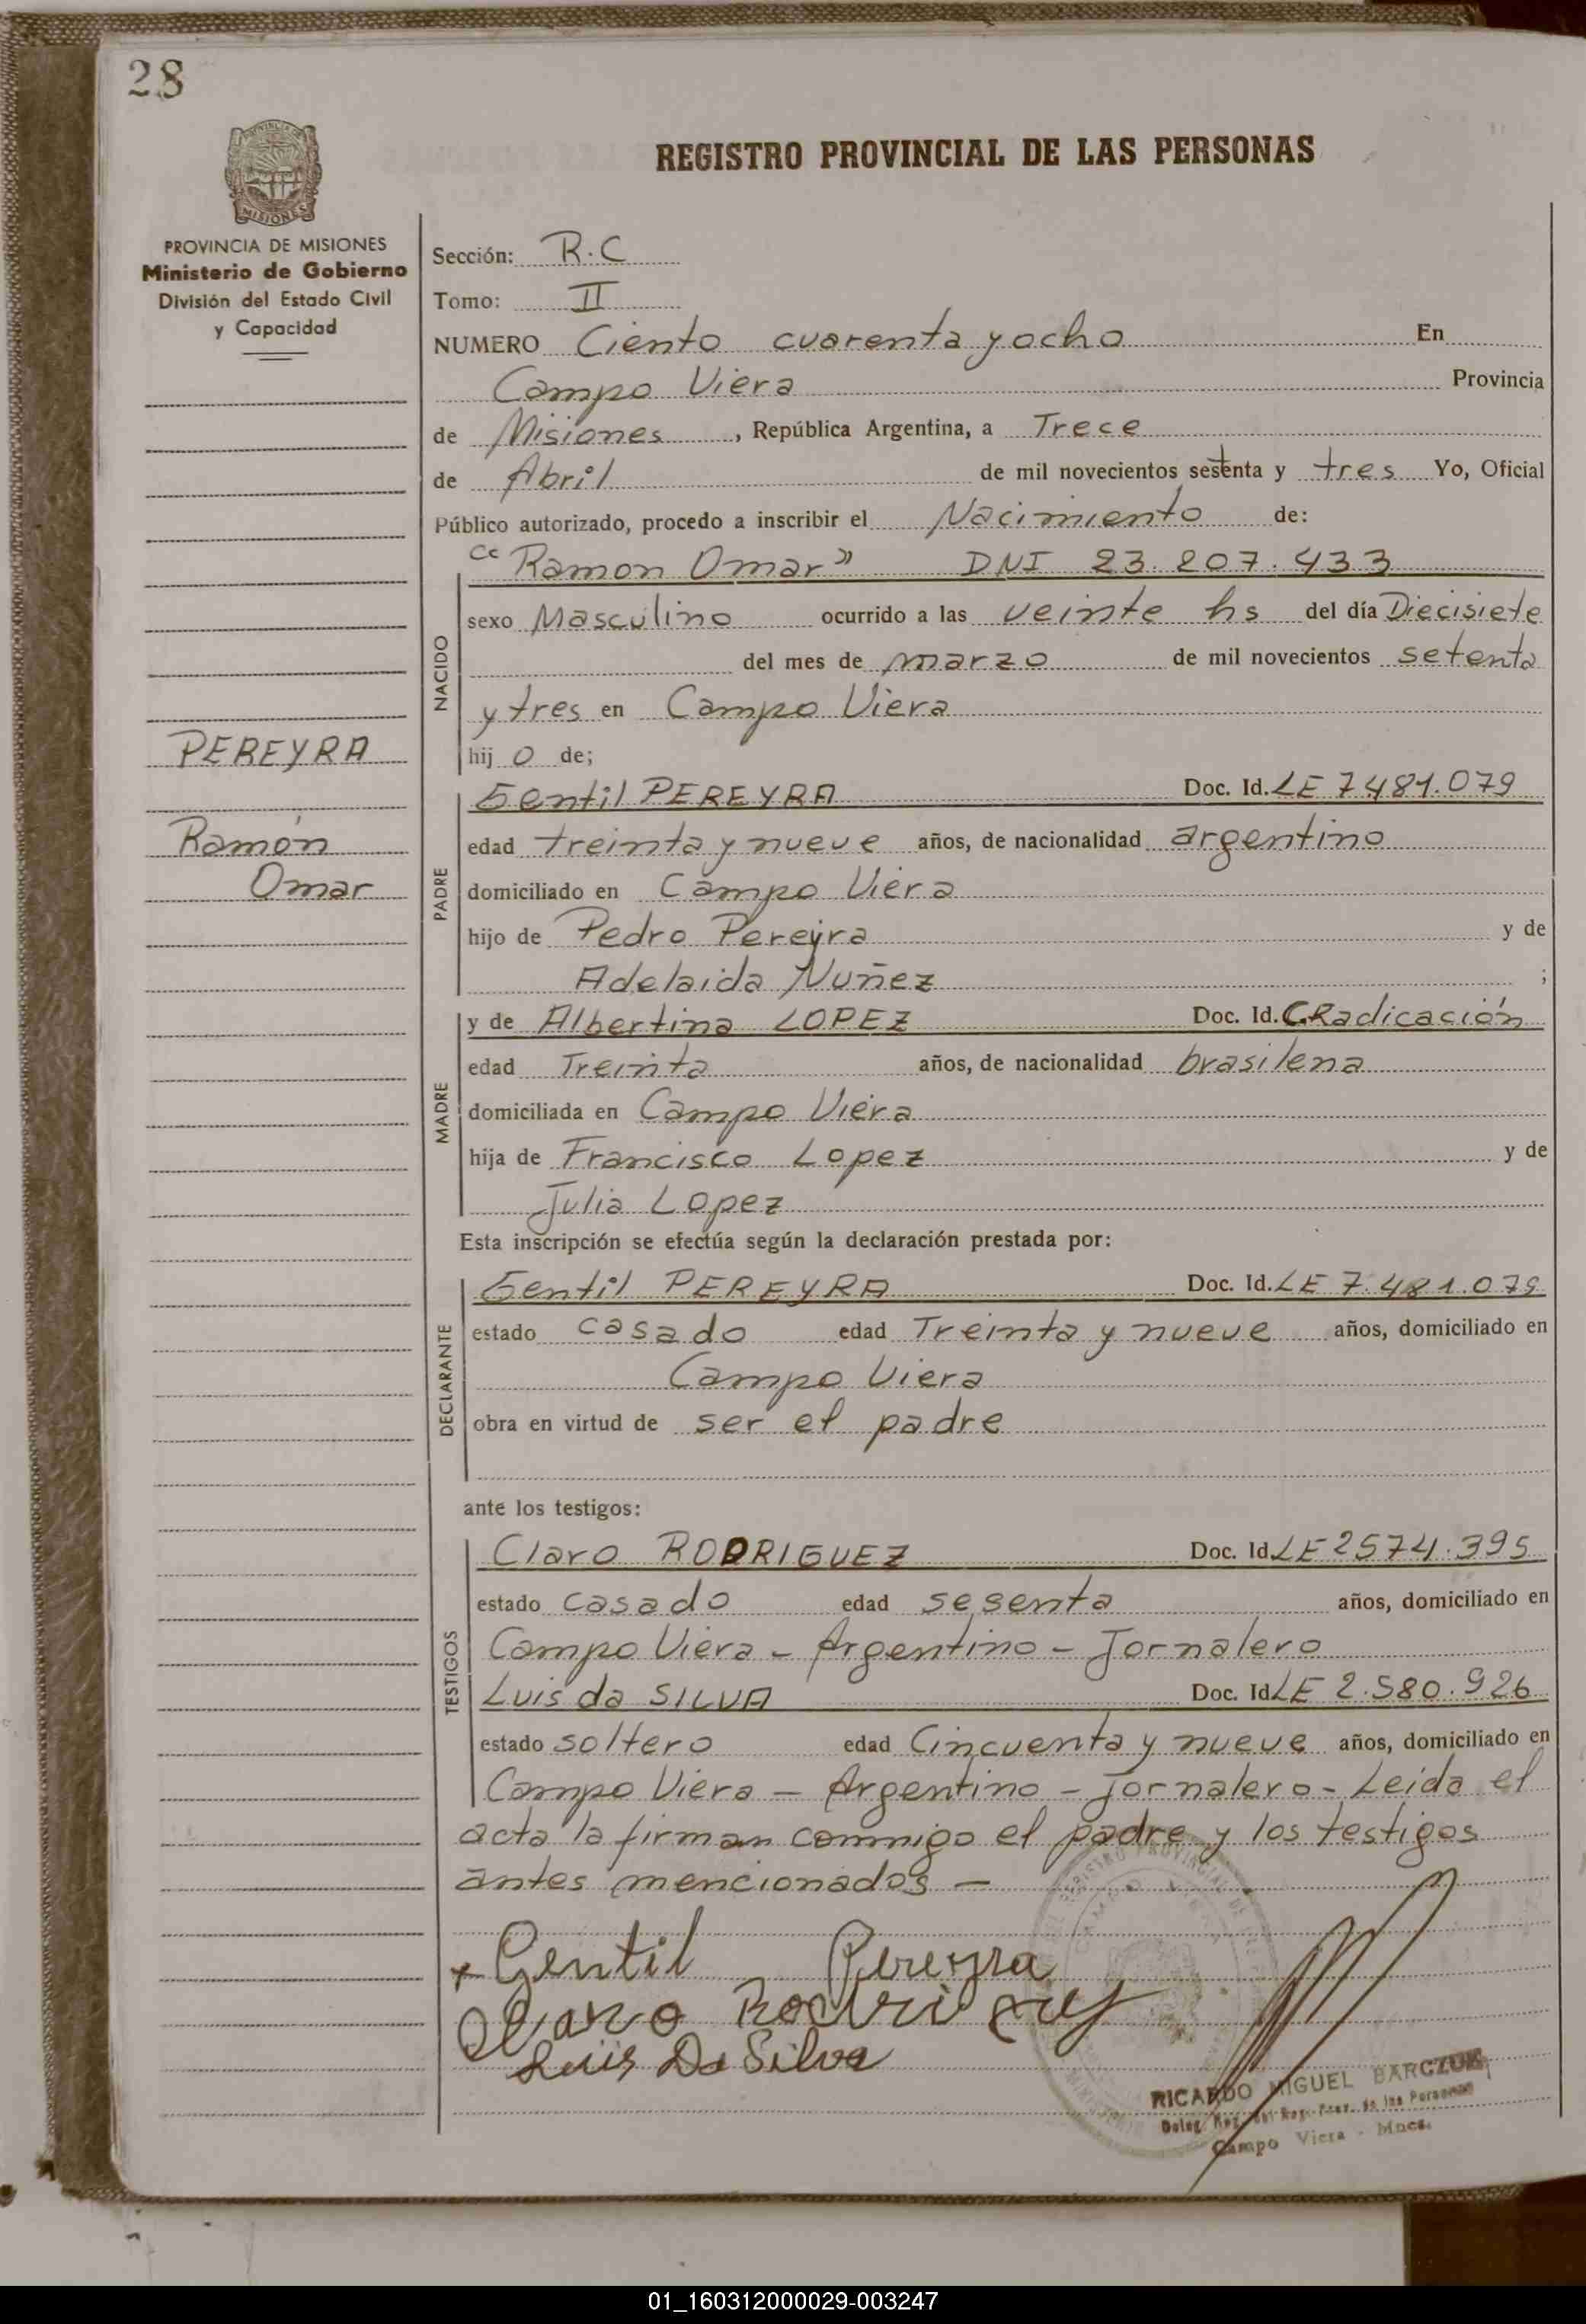 28
REGISTRO PROVINCIAL DE LAS PERSONAS
MISIONES
PROVINCIA DE MISIONES
Ministerio de Gobierno
División del Estado Civil
y Capacidad
PEREYRA
Ramón
Omar
Sección: R.C
Tomo: II
NUMERO Ciento cuarenta y ocho En
Campo Viera Provincia
de Misiones, República Argentina, a Trece
de Abril de mil novecientos setenta y tres Yo, Oficial
Público autorizado, procedo a inscribir el Nacimiento de:
"Ramon Omar" DNI 23.207.433
NACIDO
sexo Masculino ocurrido a las veinte hs del día Diecisiete
del mes de marzo de mil novecientos setenta
y tres en Campo Viera
hij o de;
PADRE
Gentil PEREYRA Doc. Id. LE 7481.079
edad treinta y nueve años, de nacionalidad argentino
domiciliado en Campo Viera
hijo de Pedro Pereyra y de
Adelaida Nuñez ;
MADRE
y de Albertina LOPEZ Doc. Id. CRadicación
edad Treinta años, de nacionalidad brasilena
domiciliada en Campo Viera
hija de Francisco Lopez y de
Julia Lopez
Esta inscripción se efectúa según la declaración prestada por:
DECLARANTE
Gentil PEREYRA Doc. Id. LE 7.481.079
estado casado edad Treinta y nueve años, domiciliado en
Campo Viera
obra en virtud de ser el padre
ante los testigos:
TESTIGOS
Claro RODRIGUEZ Doc. Id LE 2574.395
estado casado edad sesenta años, domiciliado en
Campo Viera - Argentino - Jornalero
Luis da SILVA Doc. Id LE 2.580.926
estado soltero edad Cincuenta y nueve años, domiciliado en
Campo Viera - Argentino - Jornalero - Leida el
acta la firman conmigo el padre y los testigos
antes mencionados -
x Gentil Pereyra
Claro Rodriguez
Luis Da Silva
RICARDO MIGUEL BARCZUK
Campo Viera - Mnes.
01_160312000029-003247